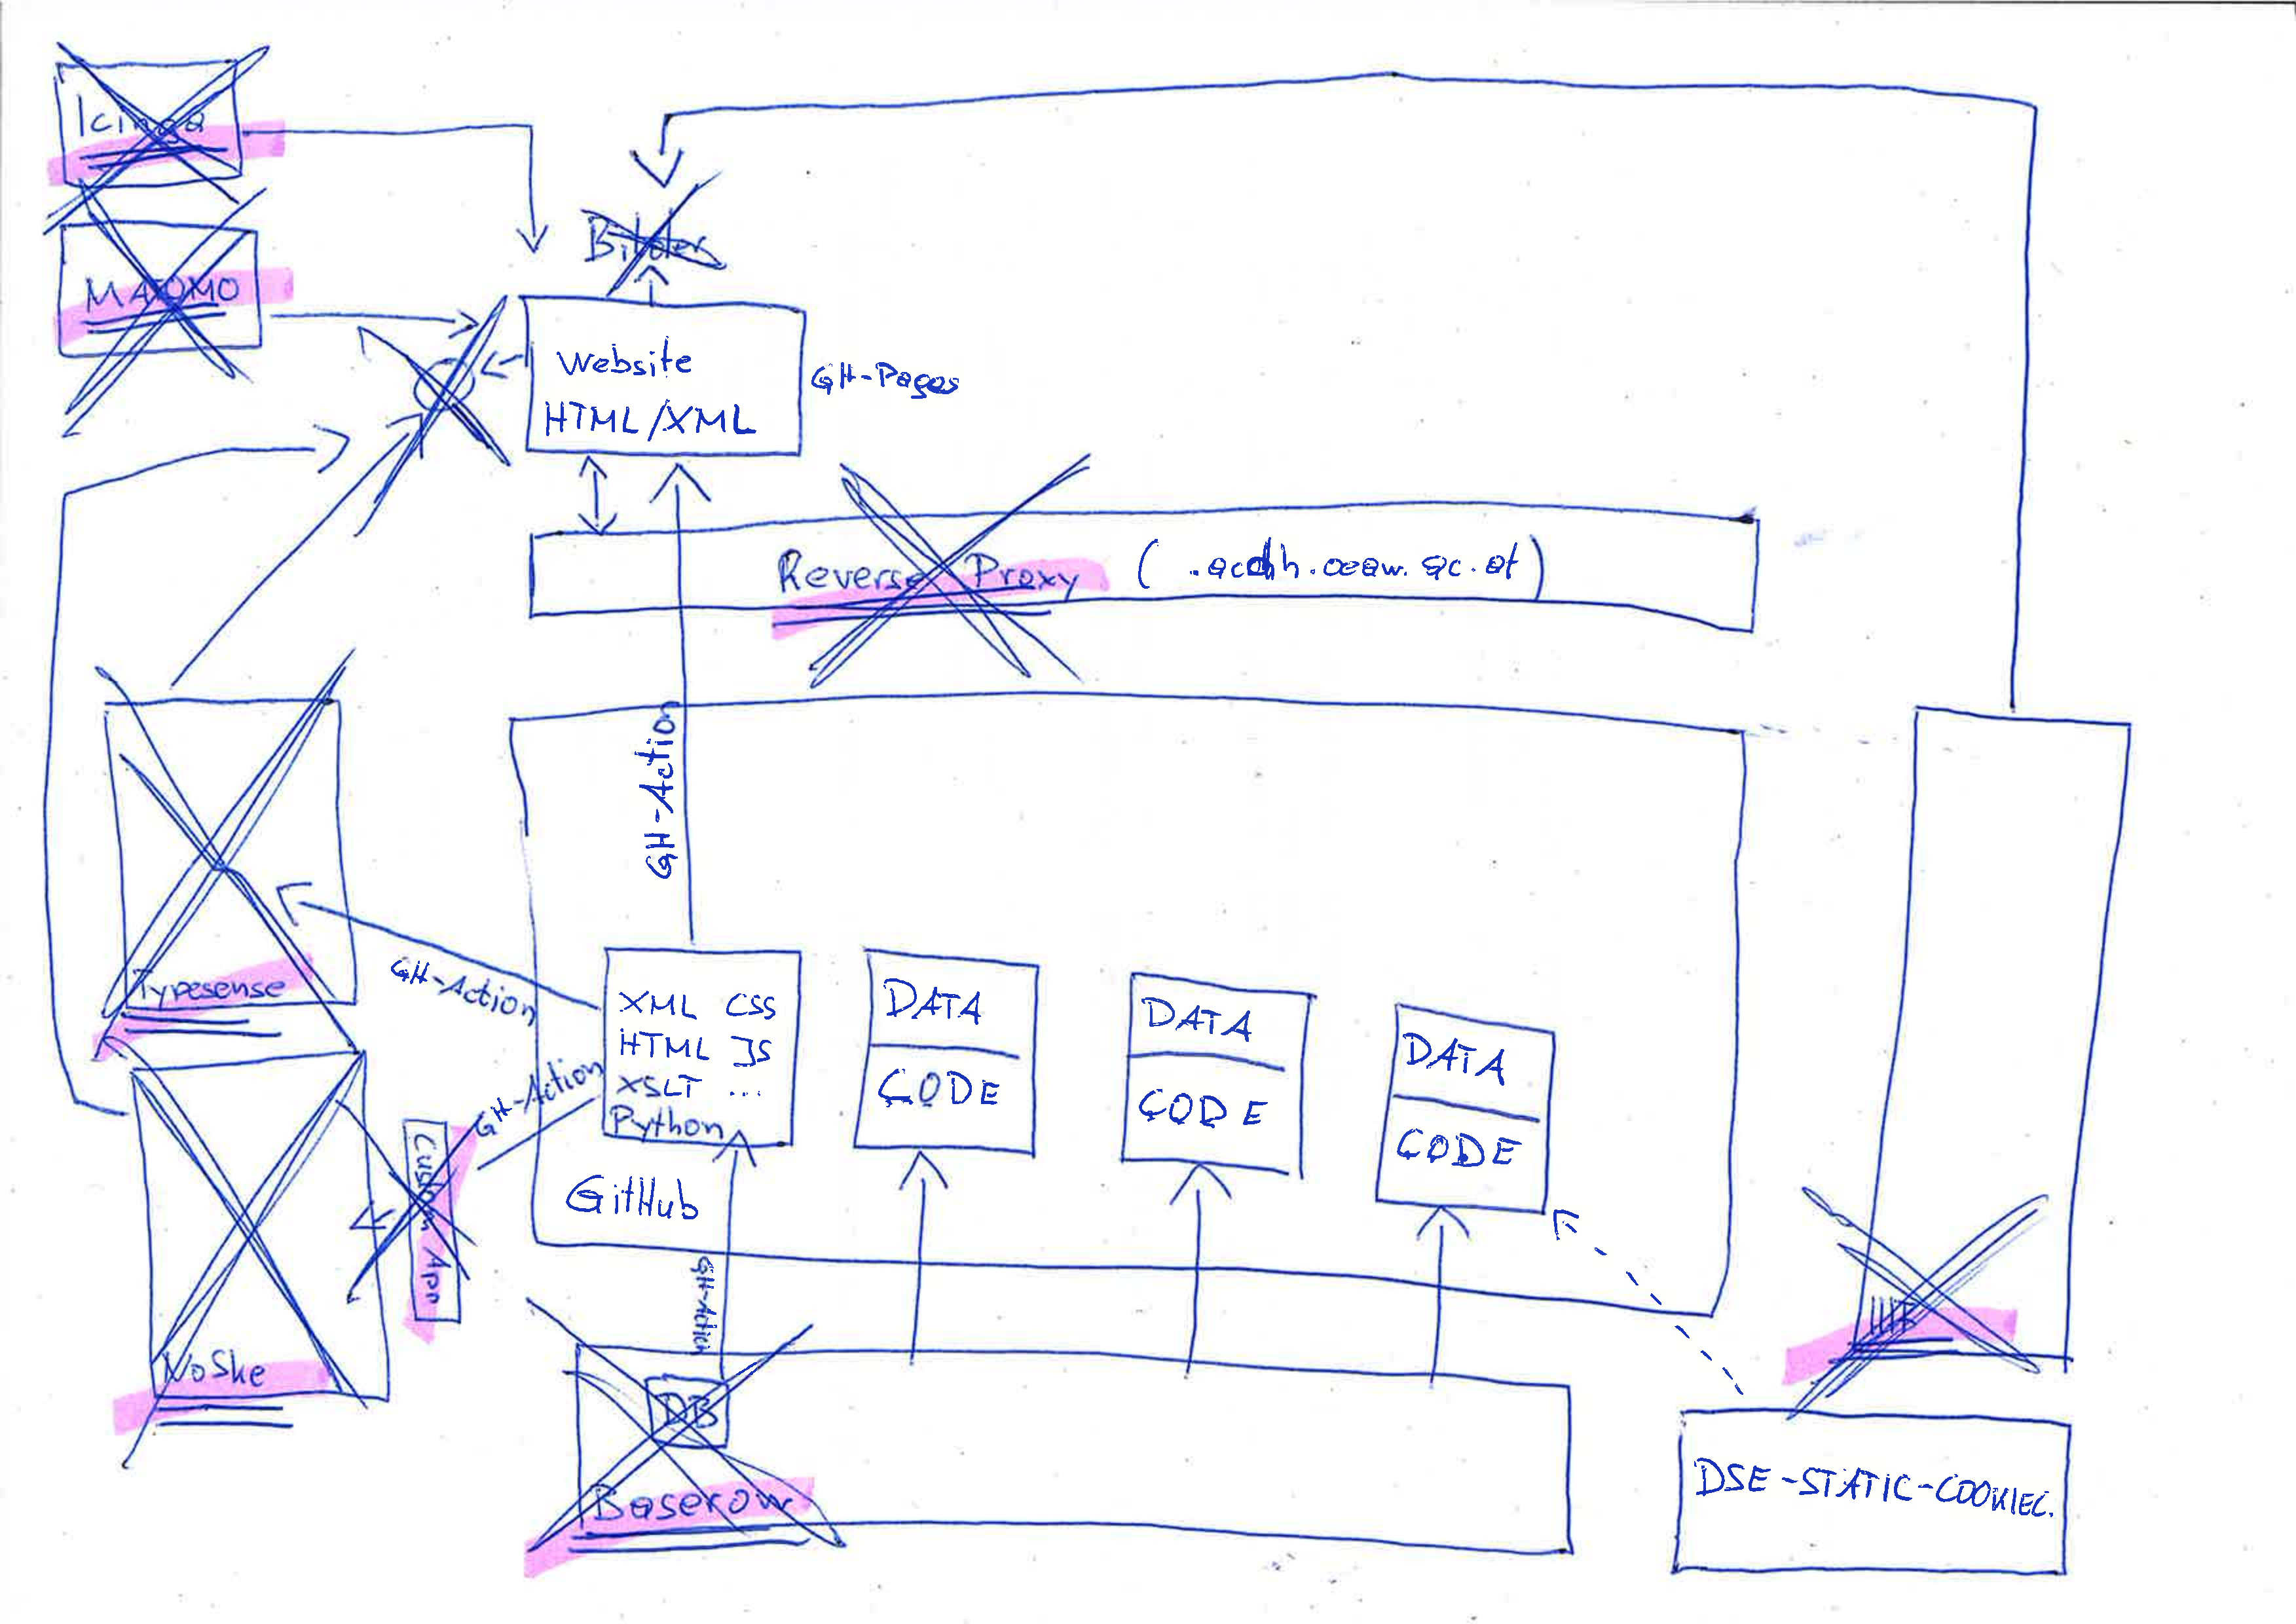 Icinga
MATOMO
Bilder
Website
HTML/XML
GH-Pages
Reverse Proxy (.acdh.oeaw.ac.at)
GH-Action
Typesense
GH-Action
XML CSS
HTML JS
XSLT ...
Python
DATA
CODE
DATA
CODE
DATA
CODE
GH-Action
Custom App
GitHub
NoSke
GH-Action
DB
Baserow
IIIF
DSE-STATIC-COOKIEC.